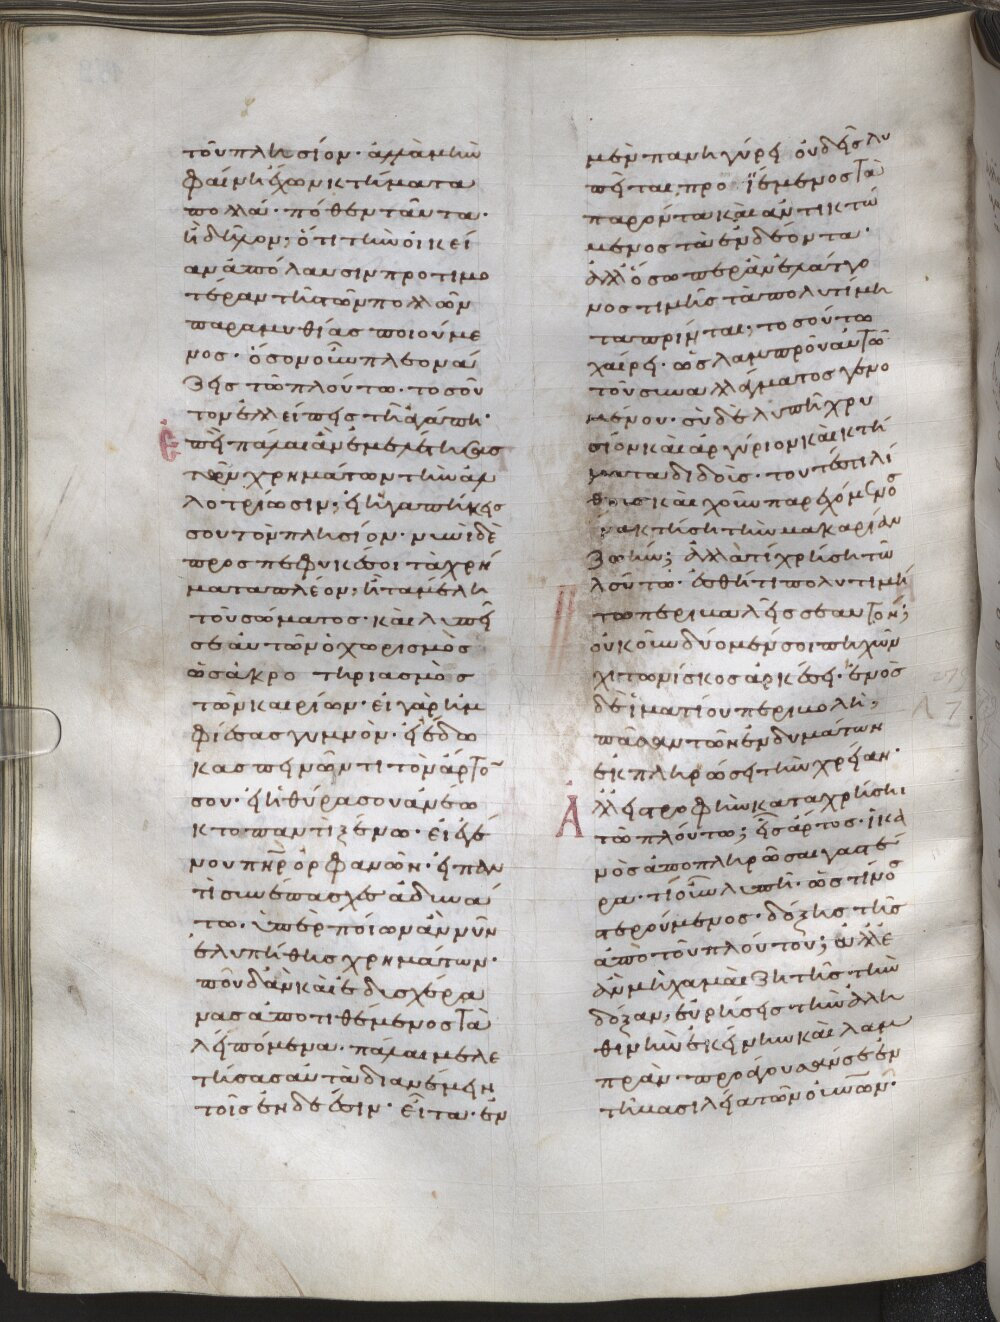 τὸν πλησίον· ἀλλὰ μὴν
φαίνῃ ἔχων κτήματα
πολλά· πόθεν ταῦτα·
ἢ δῆλον; ὅτι τὴν οἰκεί
αν ἀπόλαυσιν προτιμο
τέραν τῆς τῶν πολλῶν
παραμυθίας ποιούμε
νος· ὅσον οὖν πλεονά
ζεις τῶ πλούτω· τοσοῦ
τον ἐλλείπεις τῆ ἀγάπη·
ἐπεὶ πάλαι ἂν ἐμελέτησας
τῶν χρημάτων τὴν ἀλ
λοτρίωσιν; εἰ ἠγαπήκεις
σου τὸν πλησίον· νυνὶ δὲ
προσπέφυκέ σοι τὰ χρή
ματα πλέον; ἢ τὰ μέλη
τοῦ σώματος· καὶ λυπεῖ
σε αὐτῶν ὁ χωρισμὸς
ὡς ἀκρο τηριασμὸς
τῶν καιρίων· εἰ γὰρ ἠμ
φίεσας γυμνὸν· εἰ ἔδω
κας πεινῶντι τὸν ἄρτον
σου· εἰ ἡ θύρα σου ἀνέω
κτο παντὶ ξένω· εἰ ἐγέ
νου πηρ ὀρφανῶν· εἰ παν
τὶ συνέπασχες ἀδυνά
τω· ὑπὲρ ποίων ἂν νῦν
ἐλυπήθης χρημάτων·
ποῦ δ' ἂν καὶ ἐδισχέρα
νας ἀποτιθέμενος τὰ
λειπόμενα· πάλαι μελε
τήσας αὐτὰ διανέμειν
τοῖς ἐνδεέσιν· εἶτα· ἐν
μὲν πανηγύρει οὐδεὶς λυ
πεῖται προ ϊέμενος τὰ
παρόντα καὶ ἀντικτώ
μενος τὰ ἐνδέοντα·
ἀλλ' ὅσω περ ἂν ἐλάττο
νος τιμῆς τὰ πολυτίμη
τα πρίηται; τοσούτω
χαίρει· ὡς λαμπροῦ αὐτῶ
τοῦ συναλλάγματος γενο
μένου· σὺ δὲ λυπῆ χρυ
σίον καὶ ἀργύριον καὶ κτή
ματα διδοὺς· τουτέστι λί
θους καὶ χοῦν παρεχόμενος
ἵνα κτήση τὴν μακαρίαν
ζωήν; ἀλλὰ τί χρήση τῶ
πλούτω· ἐσθῆτι πολυτιμή
τω περιβαλεῖς σεαυτόν;
οὐκοῦν δύο μέν σοι πηχῶν
χιτωνίσκος ἀρκέσει· ἑνὸς
δὲ ἱματίου περιβολὴ,
πᾶσαν τῶν ἐνδυμάτων
ἐκπληρώσει τὴν χρείαν·
ἀλλ' εἰς τροφὴν καταχρήση
τῶ πλούτω; εἷς ἄρτος· ἱκα
νὸς ἀποπληρῶσαι γαστέ
ρα· τί οὖν λυπῆ· ὡς τίνος
στερούμενος· δόξης τῆς
ἀπὸ τοῦ πλούτου; ἀλλ' ἐ
ὰν μὴ χαμαὶ ζητῆς τὴν
δόξαν, εὑρήσεις τὴν ἀλη
θινὴν ἐκείνην καὶ λαμ
πρὰν· προάγουσάν σε ἐν
τῆ βασιλεία τῶν οὐνῶν·